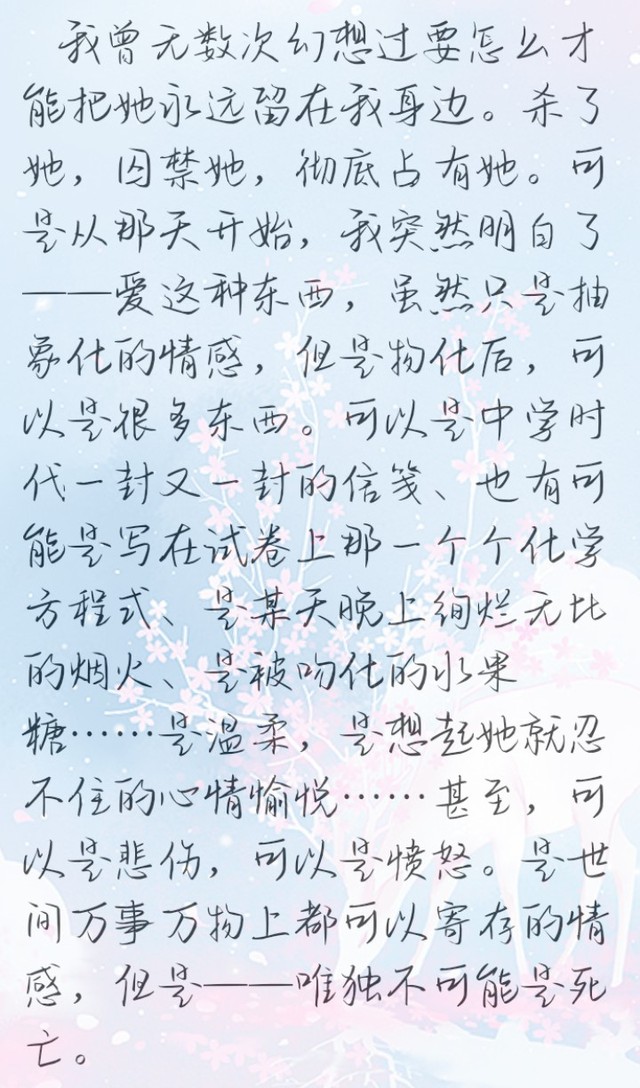 我曾无数次幻想过要怎么才
能把她永远留在我身边。杀了
她，囚禁她，彻底占有她。可
是从那天开始，我突然明白了
——爱这种东西，虽然只是抽
象化的情感，但是物化后，可
以是很多东西。可以是中学时
代一封又一封的信笺、也有可
能是写在试卷上那一个个化学
方程式、是某天晚上绚烂无比
的烟火、是被吻化的水果
糖……是温柔，是想起她就忍
不住的心情愉悦……甚至，可
以是悲伤，可以是愤怒。是世
间万事万物上都可以寄存的情
感，但是——唯独不可能是死
亡。